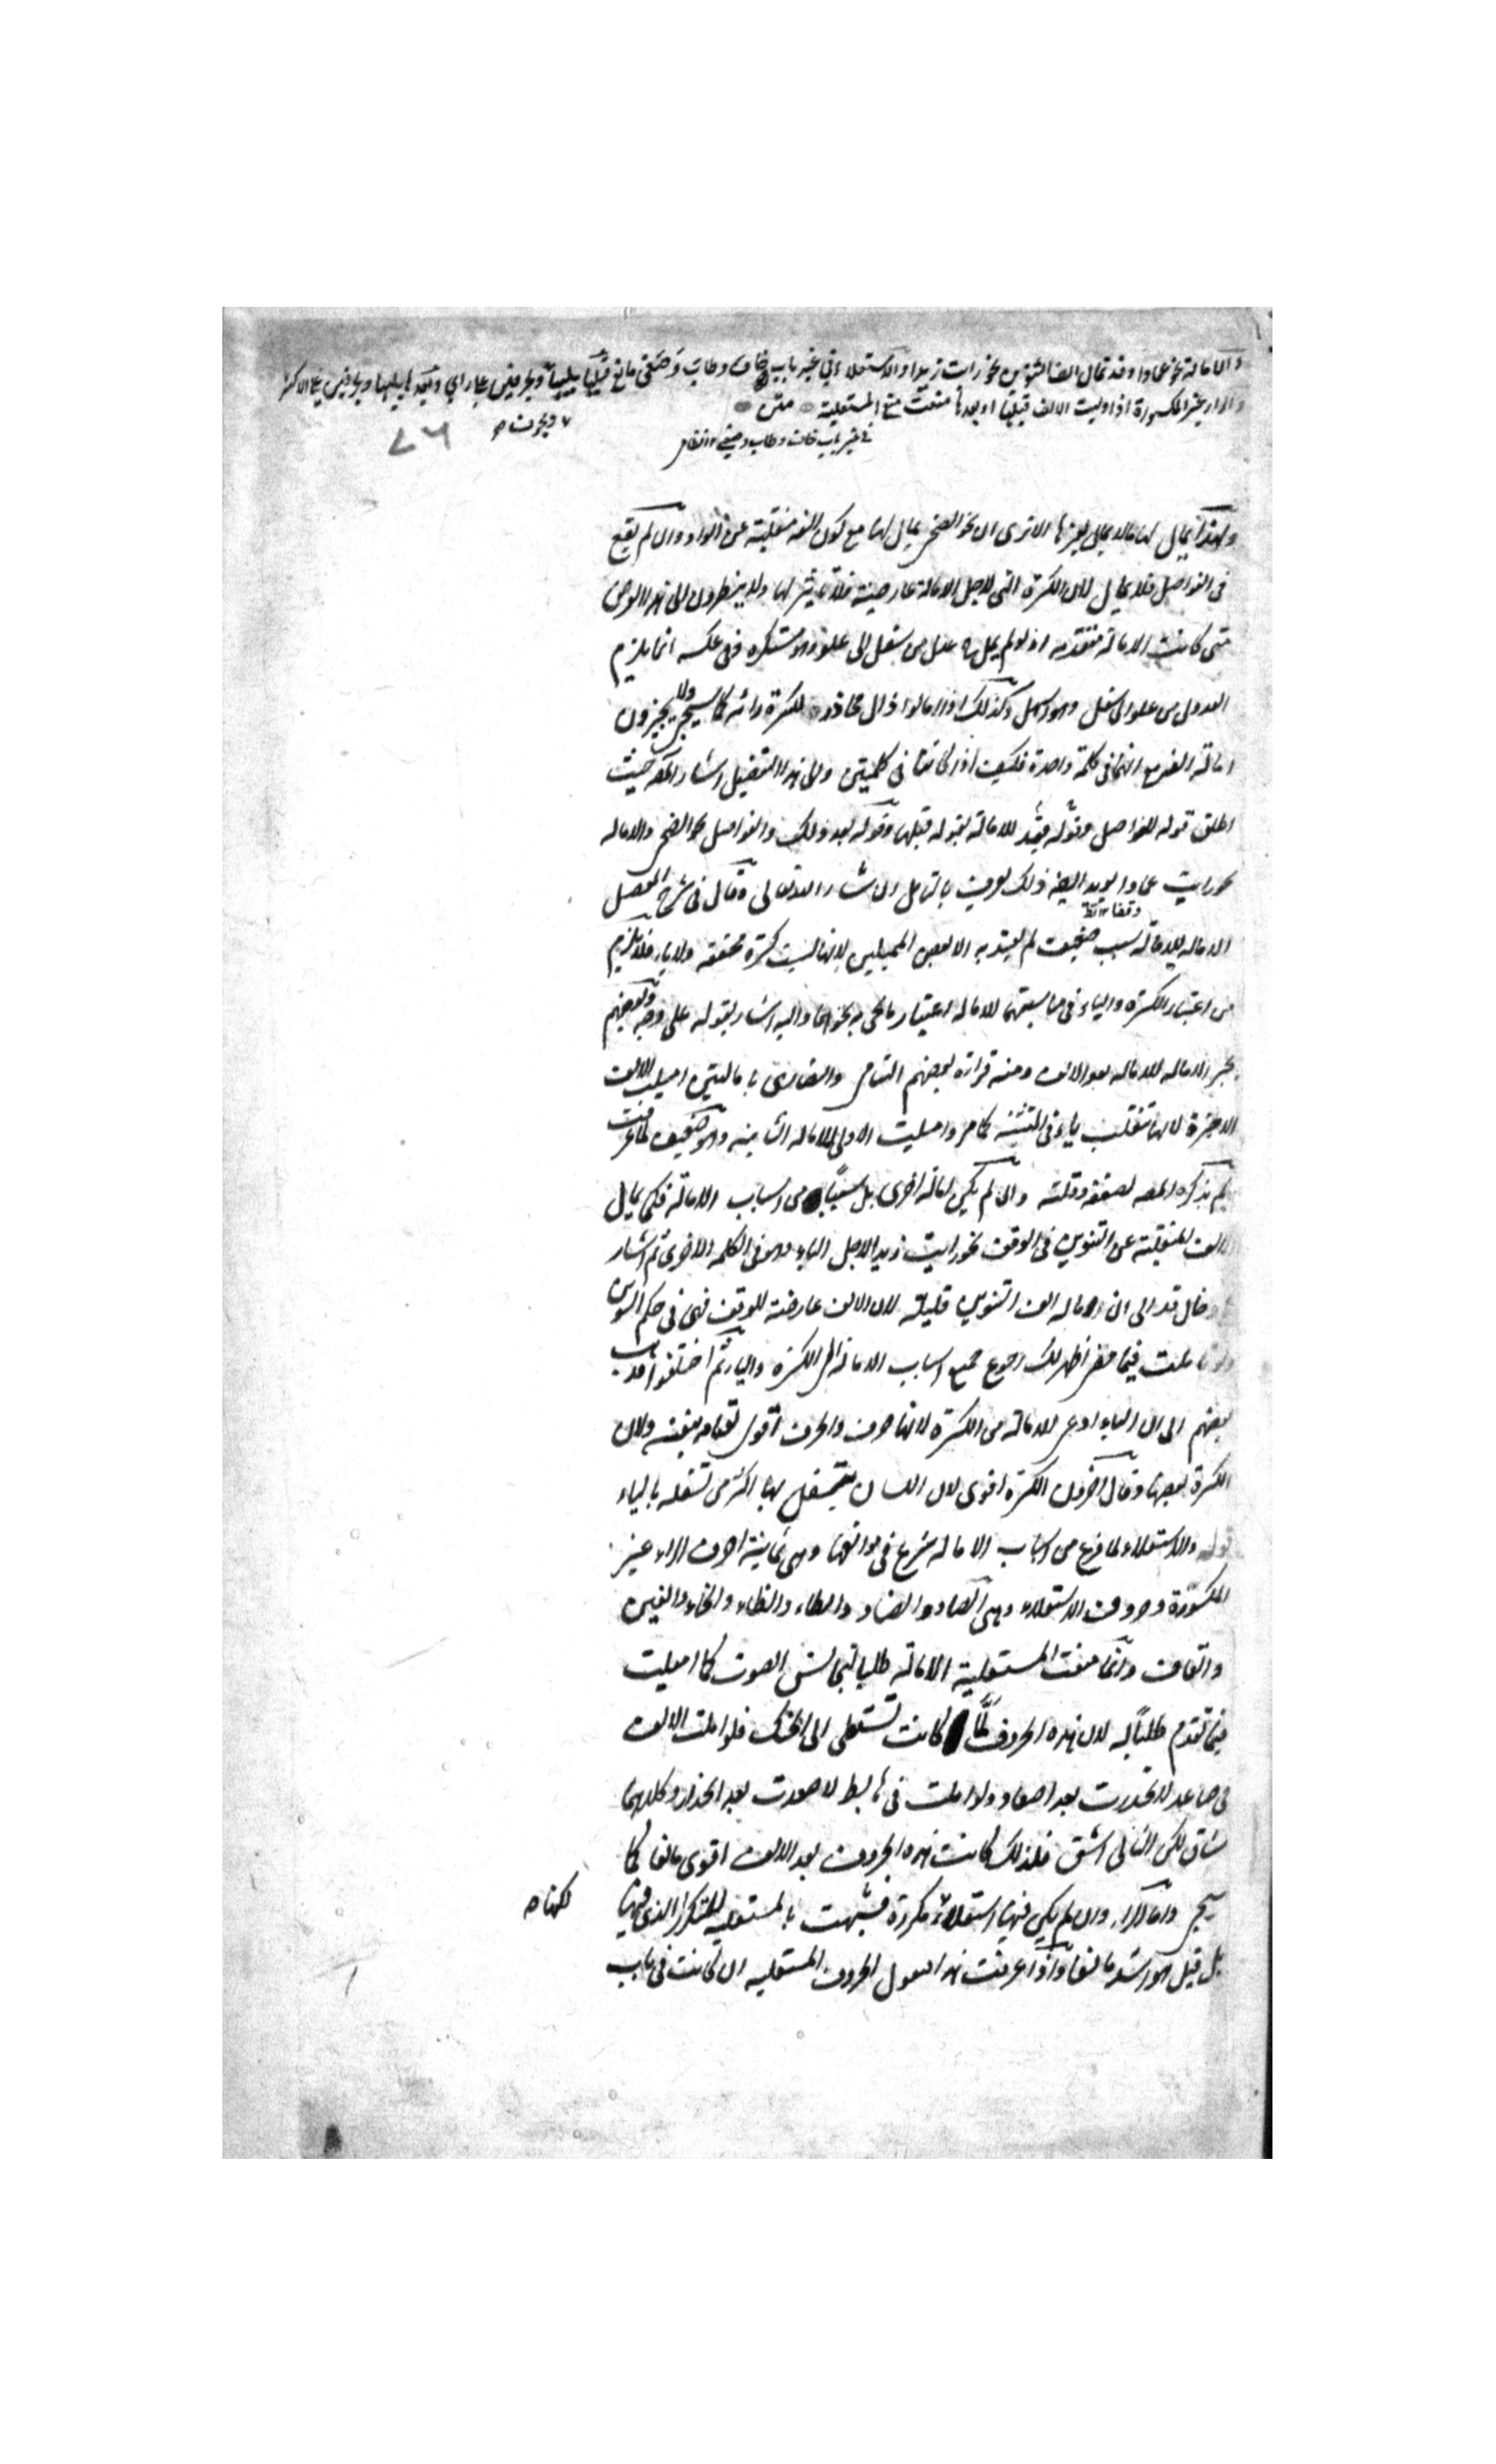 والامالة نحو عمادا وقد تمال الف التنوين نحو رايت زيدا والاستعلاء في غير باب خاف وطاب وصغى مانع قبلها يليها وبحرفين على راي وبعدها يليها وبحرفين على الاكثر
والراء غير المكسورة اذا وليت الالف قبلها او بعدها منعت منع المستعلية متن
في غير باب خاف وطاب وصغى
وبحرف صح
٧٦
ولهذا يمال لها ما لا يمال لغيرها الا ترى ان نحو الضحى يمال لها مع كون الفه منقلبة عن الواو وان لم يقع
في الفواصل فلا يمال لان الكسرة التي لاجل الامالة عارضة فلا تاثير لها ولا ينظرون الى هذا الوجه
متى كانت الامالة متقدمة اذ لو لم يمل عدل من سفل الى علو وهو مستكره وفي عكسه انما يلزم
العدول من علو الى سفل وهو سهل وكذلك اذا امالوا ذال محاذر لكسرة رائه كما سيجيء ولا يجيزون
امالة الفه مع انهما في كلمة واحدة فكيف اذا كانتا في كلمتين والى هذا التفصيل اشار المصه حيث
اطلق قوله للفواصل وقوله قيد للامالة بقوله قبلها وقوله بعد ذلك والفواصل نحو الضحى والامالة
نحو رايت عمادا يؤيد ايضا ذلك يعرف بالتامل ان شاء الله تعالى وقال في شرح المفصل
وقفا
الامالة للامالة سبب ضعيف لم يعتد به الا بعض المميلين لانها ليست كسرة محققة ولا ياء فلا يلزم
من اعتبار الكسرة والياء في مناسبتهما للامالة اعتبار ما نحي به نحوهما واليه اشار بقوله على وجه وبعضهم
يجيز الامالة للامالة بعد الالف ومنه قراءة بعضهم اليتامى والنصارى بامالتين اميلت الالف
الاخيرة لانها تنقلب ياء في التثنية كما مر واميلت الاولى للامالة الثانية وهو ضعيف لما عرفت
لم يذكره المصه لضعفه وقلته وان لم يكن امالة اخرى بل سببا من اسباب الامالة فكما يمال
الالف المنقلبة عن التنوين في الوقف نحو رايت زيدا لاجل الياء وهو في الكلمة الاخرى ثم اشار
وقال قد الى ان امالة الف التنوين قليلة لان الالف عارضة للوقف فهي في حكم التنوين
ولو تاملت فيما مضى ظهر لك رجوع جميع اسباب الامالة الى الكسرة والياء ثم اختلفوا فذهب
بعضهم الى ان الياء ادعى للامالة من الكسرة لانها حرف والحرف اقوى لقيامه بنفسه ولان
الكسرة بعضها وقال آخرون الكسرة اقوى لان اللسان يتسفل بها اكثر من تسفله بالياء
قوله والاستعلاء لما فرغ من اسباب الامالة شرع في موانعها وهي ثمانية احرف الراء غير
المكسورة وحروف الاستعلاء وهي الصاد والضاد والطاء والظاء والخاء والغين
والقاف وانما منعت المستعلية الامالة طلبا لتجانس الصوت كما اميلت
فيما تقدم طلبا له لان هذه الحروف لما كانت تستعلي الى الحنك فلو املت الالف
في صاعد لانحدرت بعد اصعاد ولو املت في هابط لاصعدت بعد انحدار وكلاهما
شاق لكن الثاني اشق فلذلك كانت هذه الحروف بعد الالف اقوى مانعا كما
سيجيء واما الراء وان لم يكن فيها استعلاء مكررة فشبهت بالمستعلية للتكرار الذي فيها
لكنها صح
بل قيل هو اشد مانعا واذا عرفت هذا فنقول الحروف المستعلية ان كانت في باب